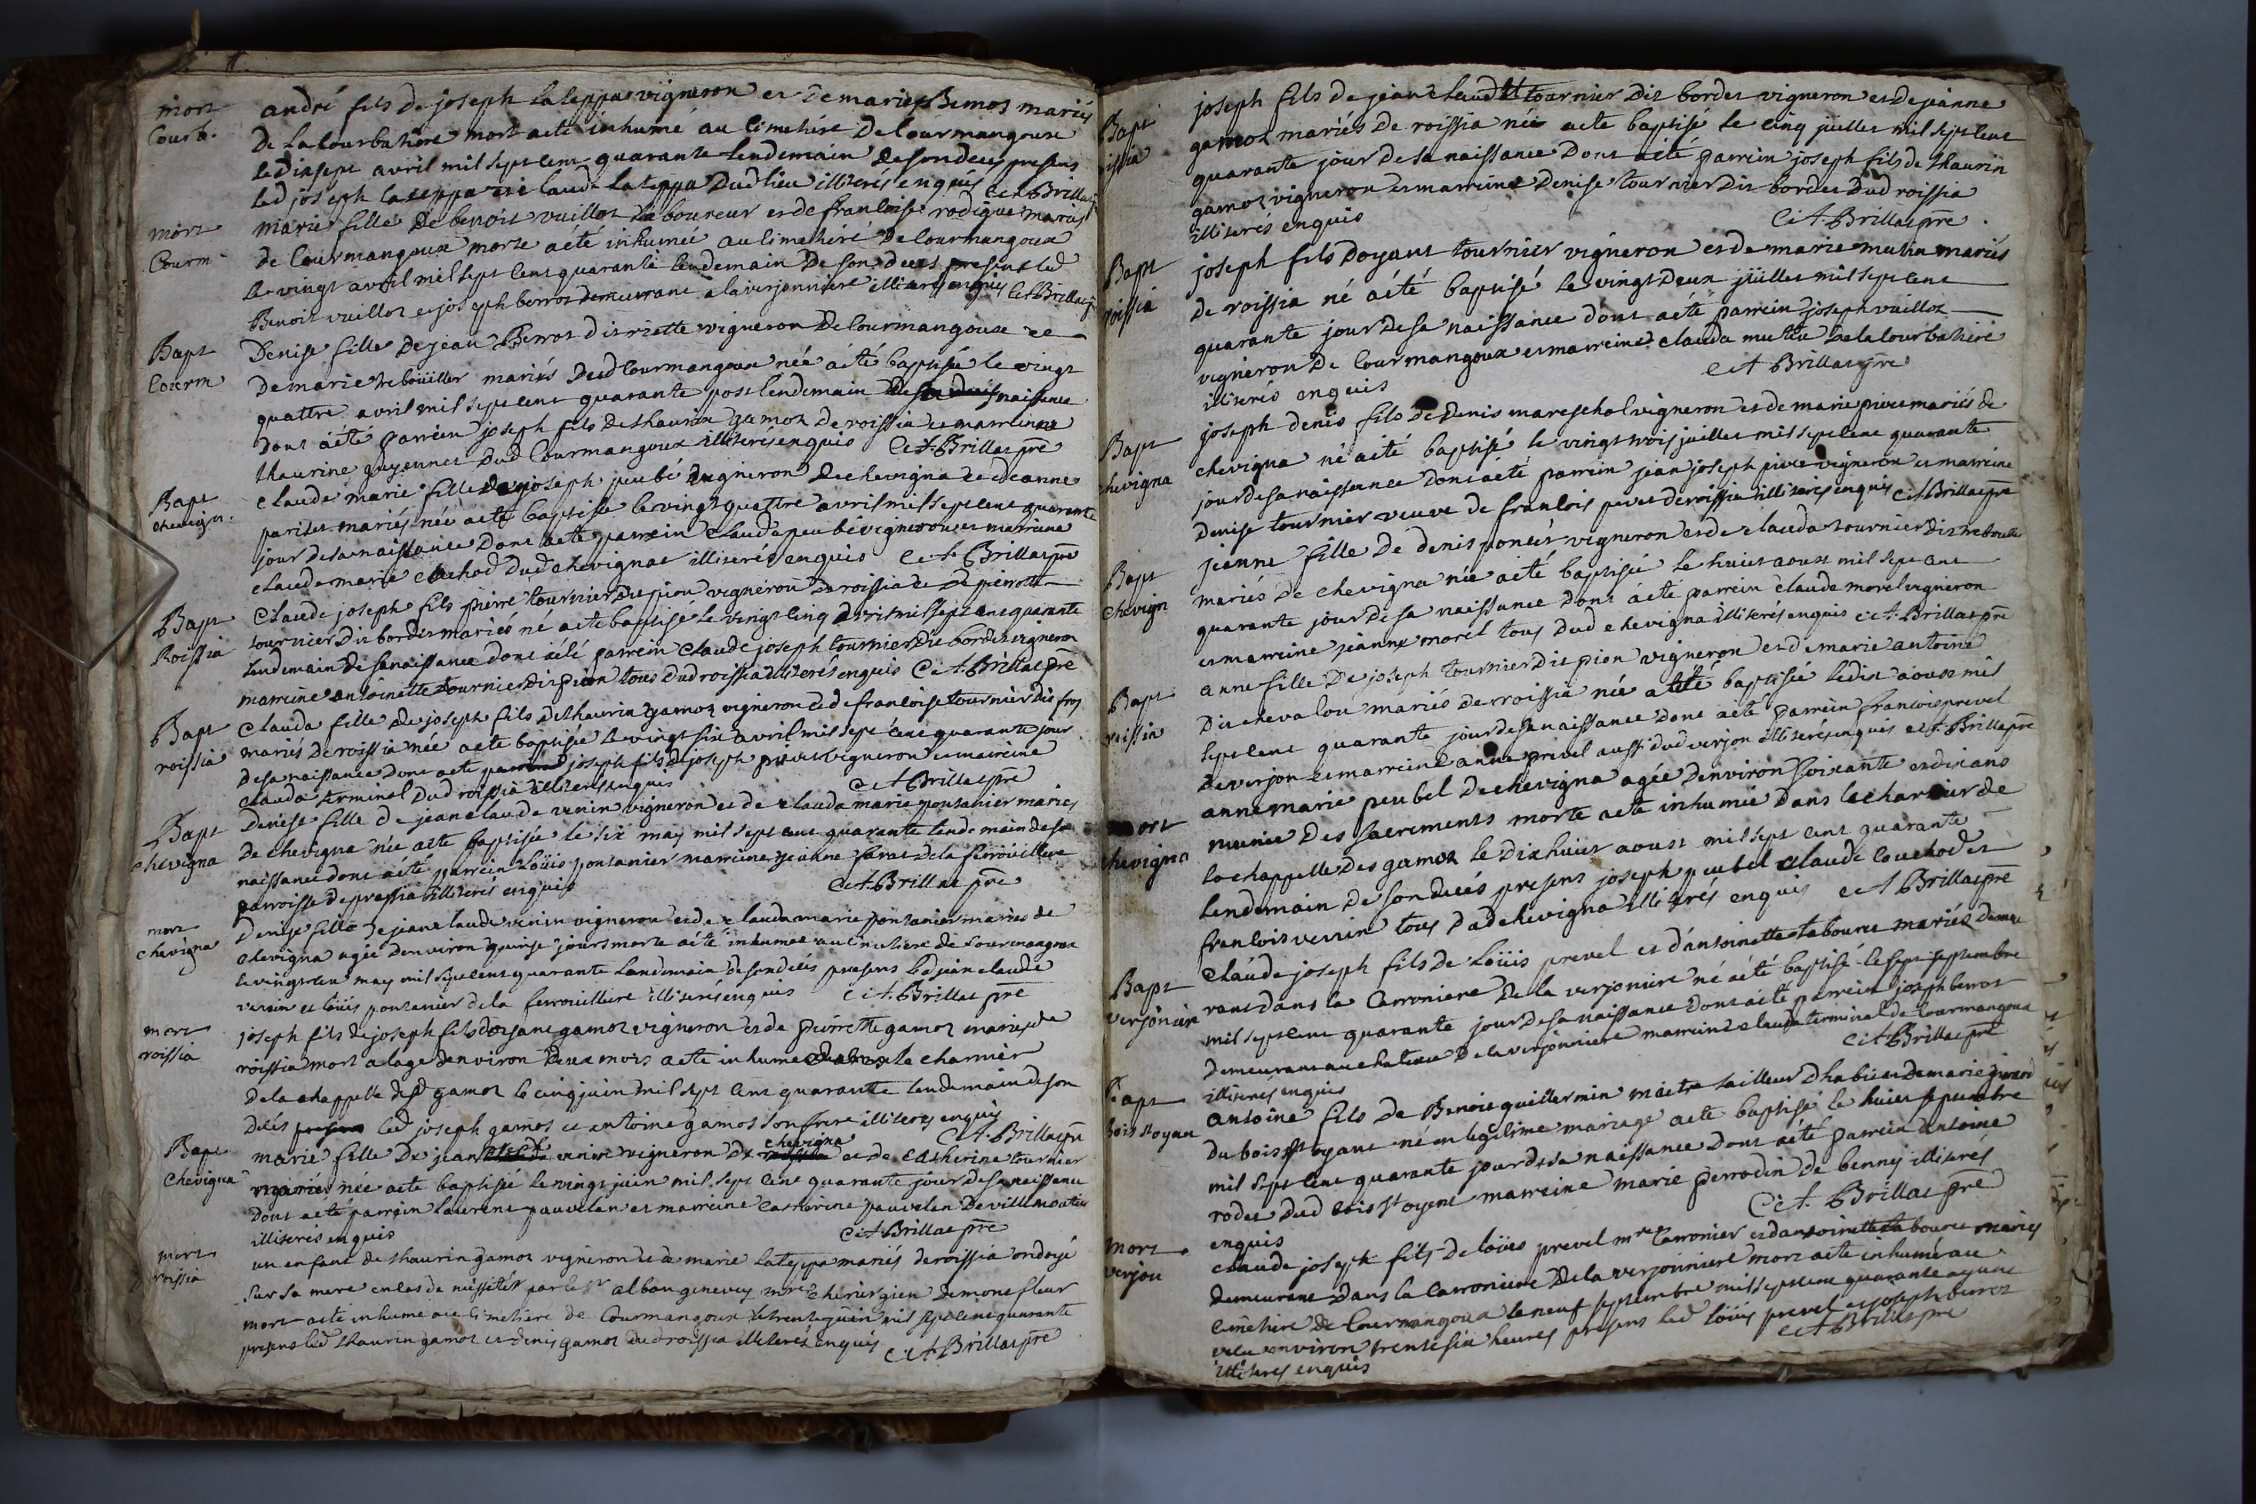 mort andré fils de joseph lateppa vigneron et de marie Bernos mariés
Courm. de la Courbatiere mort a été inhumé au cimethiére de Courmangoux
le dixsept avril mil sept cent quarante lendemain de son deces presens
led joseph lateppa et claude lateppa dud lieu illiterés enquis C et Brillat
mort marie fille de benoit vuillot laboureur et de francoise rodigue mariés
Courm de Courmangoux morte a été inhumée au cimethiére de Courmangoux
le vingt avril mil sept cent quarante lendemain de son deces presens led
Benoit vuillot et joseph berrot demeurant a la verjonniere illiterés enquis C et Brillat
Bapt Denise fille de jean Berrot dit riette vigneron de Courmangoux et
Courm de marie reboüiller mariés dud Courmangoux née a été baptisée le vingt
quattre avril mil sept cent quarante post lendemain de sa naissance
dont a été parrein joseph fils de thaurin gamoz de roissia et marreine
thaurine guyennet dud Courmangoux illiterés enquis C et A Brillat pre
Bapt claude marie fille de joseph peubé vigneron de chevigna et de anne
chevign. pariset mariés née a été baptisée le vingt quattre avril mil sept cent quarante
jour de sa naissance dont a été parrein claude peubé vigneron et marreine
claude marie cochod dud chevignat illiterés enquis C et A Brillat pre
Bapt Claude joseph fils pierre tournier du pion vigneron de roissia et de pierrette
Roissia tournier dit bordet mariés né a été baptisé le vingt cinq avril mil sept cent quarante
lendemain de sa naissance dont a été parrein claude joseph tournier dit bordet vigneron
marreine antoinette tournier dit pion tous dud roissia illiterés enquis C et A Brillat pre
Bapt Clauda fille de joseph fils de thaurin gamoz vigneron et de francoise tournier dit
roissia mariés de roissia née a été baptisée le vingt six avril mil sept cent quarante jour
de sa naissance dont a été joseph fils de joseph vigneron et marreine
clauda terminal dud roissia illiterés enquis C et A Brillat pre
Bapt Denise fille de jean claude venin vigneron et de clauda marie pontanier mariés
chevigna de chevigna née a été baptisée le six may mil sept cent quarante lendemain de sa
naissance dont a été parrein Loüis pontanier marreine jeanne de la ferroüillere
parroisse de pressia illiterés enquis C et A Brillat pre
mort Denise fille de jean claude venin vigneron et de clauda marie pontanier mariés de
chevigna chevigna agée denviron quinze jours morte a été inhumée au cimetiere de Courmangoux
le vingt un may mil sept cent quarante lendemain de son deces presens led jean claude
venin et Loüis pontanier de la ferrouilliere illiterés enquis C et A Brillat pre
mort joseph fils de joseph fils doyant gamoz vigneron et de pierrette gamoz mariés de
roissia roissia mort a lage denviron deux mois a été inhumé dans le charnier
de la chappelle desd gamoz le cinq juin mil sept cent quarante lendemain de son
deces led joseph gamos et antoine gamos son frere illiterés enquis
C et A Brillat pre
Bapt marie fille de jean venin vigneron de chevigna et de Catherine tournier
Chevigna mariés née a été baptisée le vingt juin mil sept cent quarante jour de sa naissance
dont a été parrein laurent pauvelan et marreine Catherine pauvelan de villemoutier
illiterés enquis C et A Brillat pre
mort un enfant de thaurin gamoz vigneron et de marie lateppa mariés de roissia ondoyé
roissia sur sa mere en cas de nécessité par le sr alban genevey mre chirurgien demonefleur
mort a été inhumé au cimetiere de Courmangoux le trente juin mil sept cent quarante
presens led thaurin gamoz et denis gamoz dud roissia illiterés enquis C et A Brillat pre
Bapt joseph fils de jean claude tournier dit bordet vigneron et de jeanne
gamoz mariés de roissia né a été baptisé le cinq juillet mil sept cent
quarante jour de sa naissance dont a été parrein joseph fils de thaurin
gamoz vigneron et marreine denise tournier dit bordet dud roissia
illiterés enquis C et A Brillat pre
Bapt joseph fils doyant tournier vigneron et de marie mutin mariés
roissia de roissia né a été baptisé le vingt deux juillet mil sept cent
quarante jour de sa naissance dont a été parrein joseph vuillot
vigneron de Courmangoux et marreine clauda mutin de la Courbatiere
illiterés enquis C et A Brillat pre
Bapt joseph denis fils de denis mareschal vigneron et de marie pivet mariés de
chevigna chevigna né a été baptisé le vingt trois juillet mil sept cent quarante
jour de sa naissance dont a été parrein jean joseph pivet vigneron et marreine
denise tournier veuve de francois pivet de roissia illiterés enquis C et A Brillat pre
Bapt jeanne fille de denis poncet vigneron et de clauda tournier dit
chevign mariés de chevigna née a été baptisée le huict aoust mil sept cent
quarante jour de sa naissance dont a été parrein claude morel vigneron
et marreine jeanne morel tous dud chevigna illiterés enquis C et A Brillat pre
Bapt anne fille de joseph tournier dit pion vigneron et de marie antoine
roissia dit chevalou mariés de roissia née a été baptisée le dix aoust mil
sept cent quarante jour de sa naissance dont a été parrein francois prevel
de verjon et marreine anne prevel aussi dud verjon illiterés enquis C et A Brillat pre
mort anne marie peubel de chevigna agée denviron soixante et dix ans
chevigna munie des sacremens morte a été inhumée dans le charnier de
la chappelle des gamoz le dixhuit aoust mil sept cent quarante
lendemain de son deces presens joseph peubel claude couchod et
francois verrin tous dud chevigna illiterés enquis C et A Brillat pre
Bapt claude joseph fils de Loüis prevel et dantoinette tabouret mariés demeu
verjoniere rant dans la Carroniere de la verjoniere né a été baptisé le sept septembre
mil sept cent quarante jour de sa naissance dont a été parrein joseph berrot
demeurant au chateau de la verjonniere marreine clauda terminal de Courmangoux
illiterés enquis C et A Brillat pre
Bapt antoine fils de Benoit quillermin maitre tailleur dhabis et de marie girard
bois st oyant du bois st oyant né en legitime mariage a été baptisé le huict septembre
mil sept cent quarante jour de sa naissance dont a été parrein antoine
rodet dud bois st oyent marreine marie perrodin de benny illiterés
enquis C et A Brillat pre
mort claude joseph fils de loüis prevel mre Carronier et dantoinette tabouret mariés
verjon demeurant dans la Carroniere de la verjonniere mort a été inhumé au
cimetiere de Courmangoux le neuf septembre mil sept cent quarante ayant
vecu environ trente six heures presens led loüis prevel et joseph berrot
illiterés enquis C et A Brillat pre